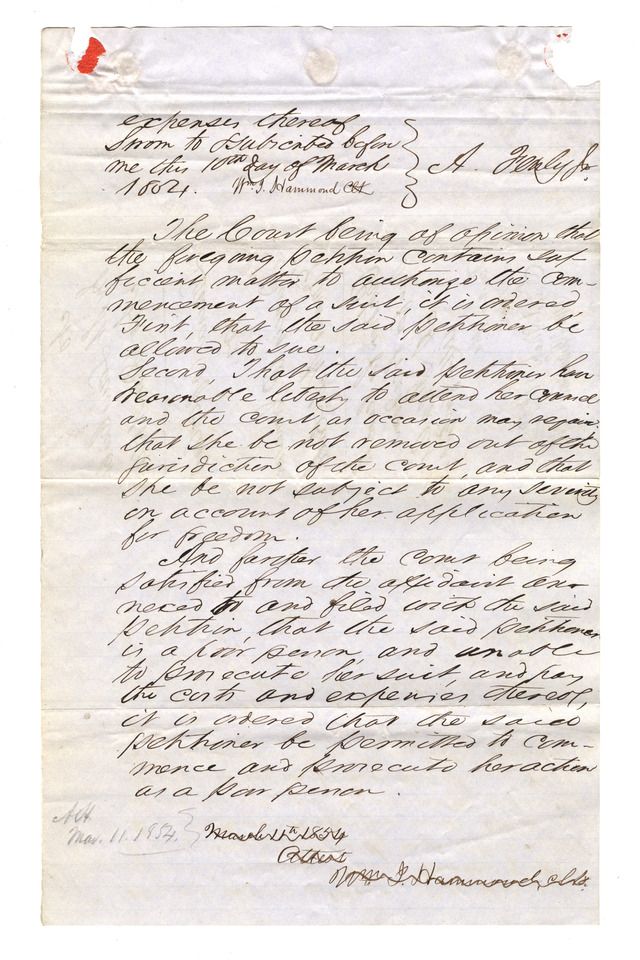 expenses thereof
Sworn to & subscribed before
me this 10th day of March
1854. Wm. J. Hammond Clk
A. Fenly Jr.
The Court being of opinion that
the foregoing petition contains suf
ficient matter to authorize the com-
mencement of a suit, it is ordered,
First, that the said petitioner be
allowed to sue.
Second, That the said petitioner have
reasonable liberty to attend her counsel
and the court, as occasion may require
that she be not removed out of the
jurisdiction of the court, and that
she be not subject to any severity
on account of her application
for freedom.
And farther the court being
satisfied from the affidavit an-
nexed to and filed with the said
petition, that the said petitioner
is a poor person, and unable
to prosecute her suit, and pay
the costs and expenses thereof,
it is ordered that the said
petitioner be permitted to com-
mence and prosecute her action
as a poor person.
Mar. 11. 1854.
March 11th 1854
Attest
Wm J. Hammond, clk.